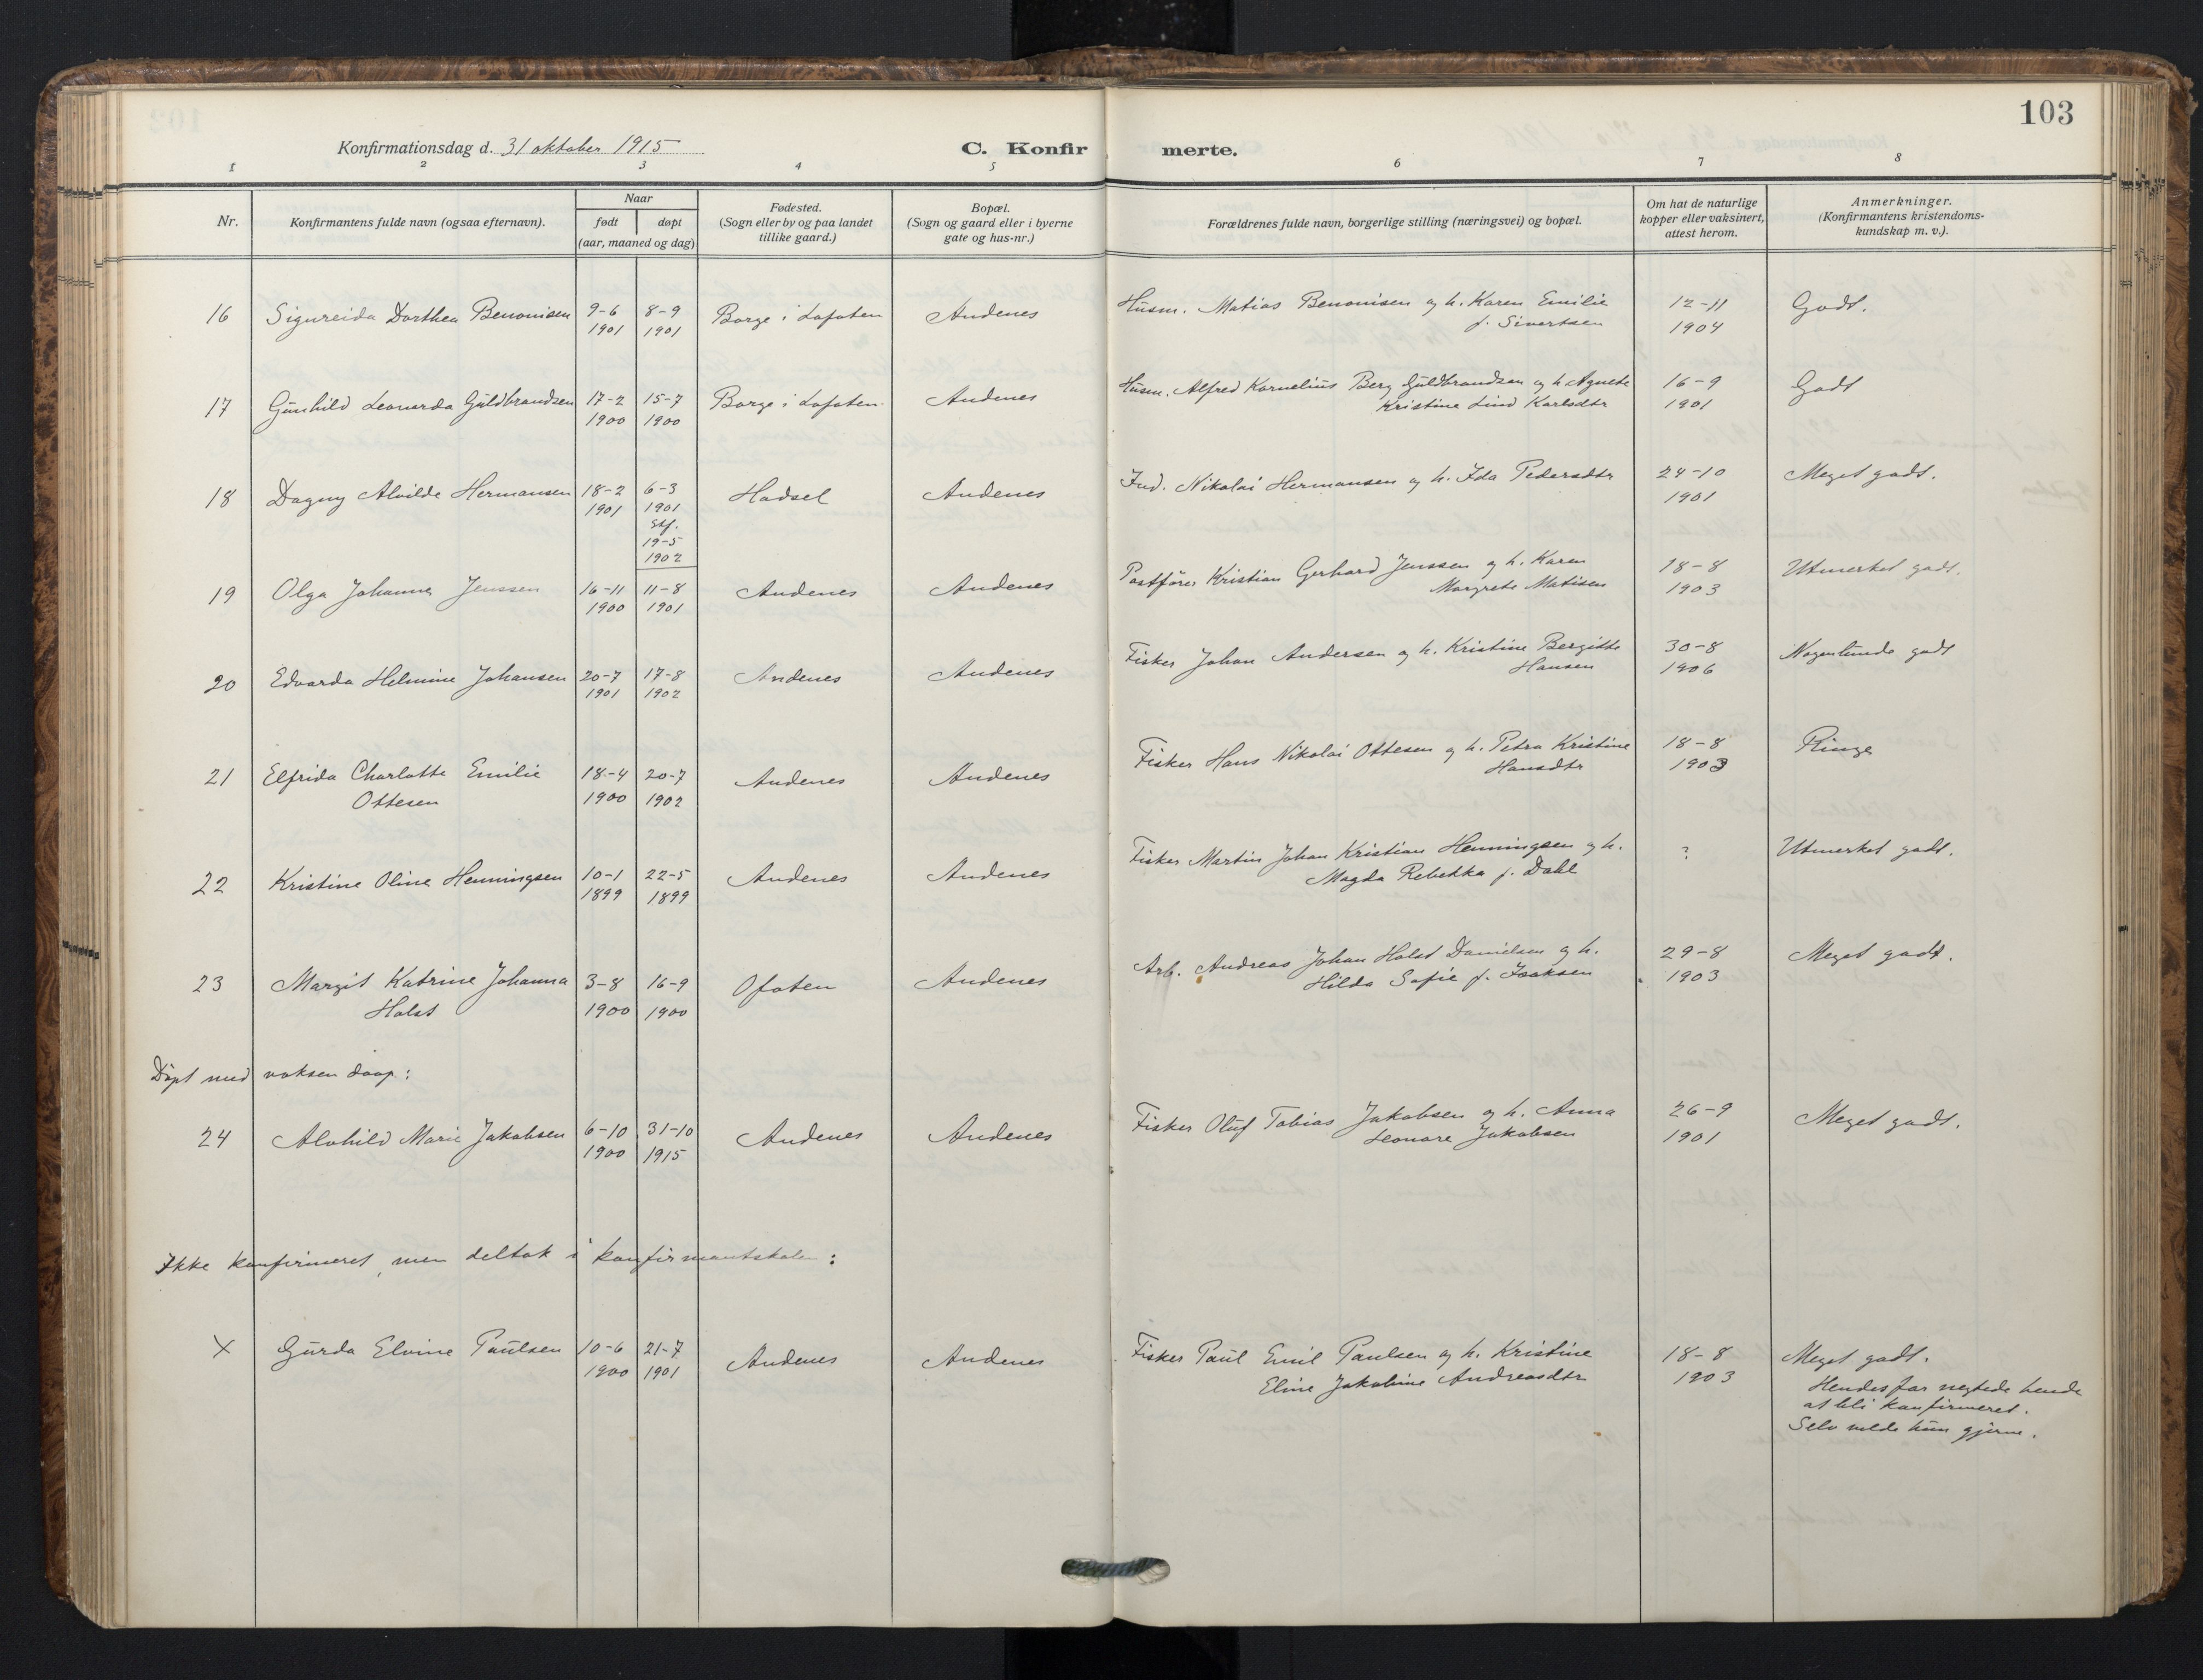 103
Konfirmationsdag d. 31 oktober 1915
C. Konfirmerte.
1 2 3 4 5 6 7 8
Nr.
Konfirmantens fulde navn (ogsaa efternavn).
Naar
født døpt
(aar, maaned og dag)
Fødested.
(Sogn eller by og paa landet
tillike gaard.)
Bopæl.
(Sogn og gaard eller i byerne
gate og hus-nr.)
Forældrenes fulde navn, borgerlige stilling (næringsvei) og bopæl.
Om hat de naturlige
kopper eller vaksinert,
attest herom.
Anmerkninger.
(Konfirmantens kristendoms-
kundskap m. v.).
16 Signreida Dorthea Benonisen 9-6 8-9 Borge i Lofoten Andenes Husm. Matias Benonisen og h. Karen Emilie 12-11 Godt.
1901 1901 f. Sivertsen 1904
17 Gunhild Leonarda Guldbrandsen 17-2 15-7 Borge i Lofoten Andenes Husm. Alfred Kornelius Berg Guldbrandsen og h. Agnete 16-9 Godt
1900 1900 Kristine Lind Karlsdtr 1901
18 Dagny Alvilde Hermansen 18-2 6-3 Hadsel Andenes Ind. Nikolai Hermansen og h. Ida Pedersdtr 24-10 Meget godt.
1901 1901 1901
Stf.
19-5
1902
19 Olga Johanne Jenssen 16-11 11-8 Andenes Andenes Postfører Kristian Gerhard Jenssen og h. Karen 18-8 Utmerket godt.
1900 1901 Margrete Matisen 1903
20 Edvarda Helmine Johansen 20-7 17-8 Andenes Andenes Fisker Johan Andersen og h. Kristine Bergitte 30-8 Nogenlunde godt
1901 1902 Hansen 1906
21 Elfrida Charlotte Emilie 18-4 20-7 Andenes Andenes Fisker Hans Nikolai Ottesen og h. Petra Kristine 18-8 Ringe
Ottesen 1900 1902 Hansdtr 1903
22 Kristine Oline Henningsen 10-1 22-5 Andenes Andenes Fisker Martin Johan Kristian Henningsen og h. ? Utmerket godt.
1899 1899 Magda Rebekka f. Dahl
23 Margit Katrine Johanna 3-8 16-9 Ofoten Andenes Arb. Andreas Johan Holst Danielsen og h. 29-8 Meget godt.
Holst 1900 1900 Hilda Sofie f. Isaksen 1903
Døpt med voksen daap:
24 Alvhild Marie Jakobsen 6-10 31-10 Andenes Andenes Fisker Oluf Tobias Jakobsen og h. Anna 26-9 Meget godt.
1900 1915 Leonore Jakobsen 1901
Ikke konfirmeret, men deltok i konfirmantskolen:
X Gurda Elvine Paulsen 10-6 21-7 Andenes Andenes Fisker Paul Emil Paulsen og h. Kristine 18-8 Meget godt.
1900 1901 Eline Jakobine Andreasdtr 1903 Hendes far negtede hende
at bli konfirmeret.
Selv vilde hun gjerne.